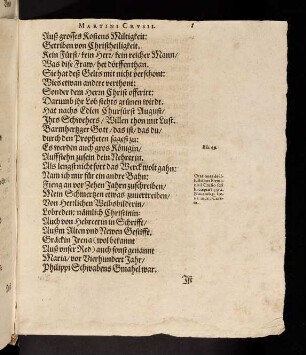 MARTINI CRVSII.
Auß grosses Kostens Miltigkeit:
Getriben von Christseligkeit.
Kein Fürst/ kein Herr/ kein reicher Mann/
Was dise Fraw/ het dörffen than.
Sie hat deß Gelts mit nicht verschont:
Wies etwan andre verthont:
Sonder dem Herrn Christ offerirt:
Darumb jhr Lob stehts grünen wirdt.
Hat nachs Edlen Churfürst August/
Jhrs Schwehers/ Willen thon mit Lust.
Barmhertzger Gott/ das ist/ das du/
durch den Propheten sagest zu:
Es werden auch gros Königin/
Auffstehn zusein dein
Als lengst nicht fort das Werck wolt gahn:
Nam ich mir für ein andre Bahn:
Fieng an vor Zehen Jahren zuschreiben/
Mein Schmertzen etwas zuuertreiben/
Von Herrlichen Weibsbildern/
Lobreden: nämlich Christinin:
Auch von Hebreerin in Schrifft/
Außm Alten und Newen Gestifft.
Gräckin Irena (wol bekannt
Auß unser Red) auch sonst genannt
Maria/ vor Vierhundert Jahr/
Philippi Schwabens Gmahel war.
Ist
Esa. 49.